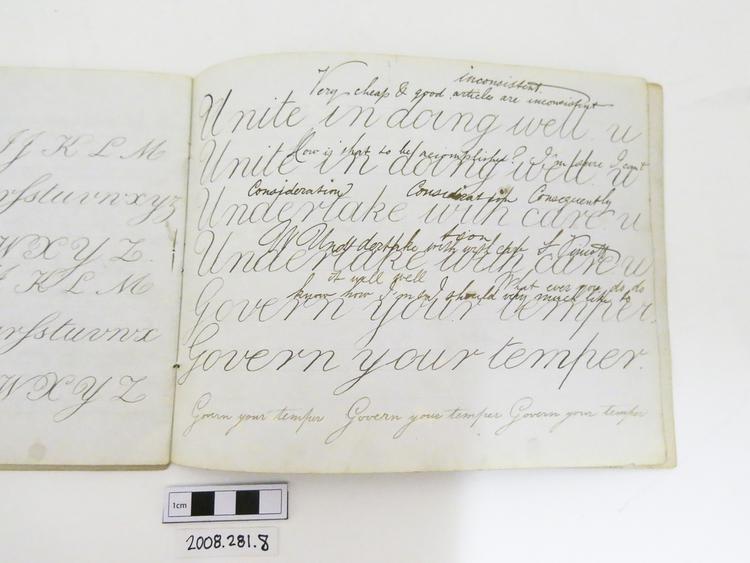 IJ K L M
rſstuvwxyz
W X Y Z.
J K L M
rſstuvwx
W X Y Z
inconsistent.
Very cheap & good articles are inconsistent
Unite in doing well. u
How is that to be accomplished? I'm sure I can't
Unite in doing well. u
Consideration Consideration Consequently
Undertake with care. u
Undertake with
Undertake with care u
it well well What ever you do do
know how I'm sure I should very much like to
Govern your temper.
Govern your temper.
Govern your temper Govern your temper Govern your temper
1cm
2008.281.8